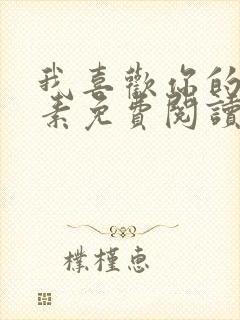 我喜歡你的
素免費閱讀
樸槿惠